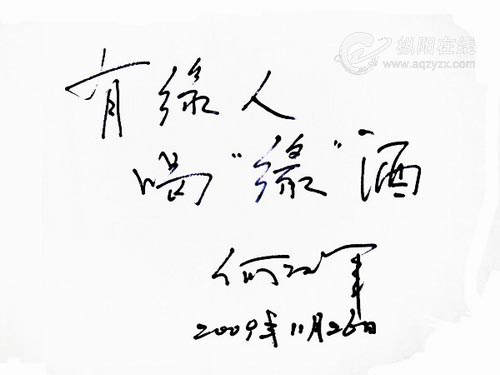 枞阳在线
www.aqzyzx.com
有緣人
喝"緣"酒
何政军
2009年11月26日